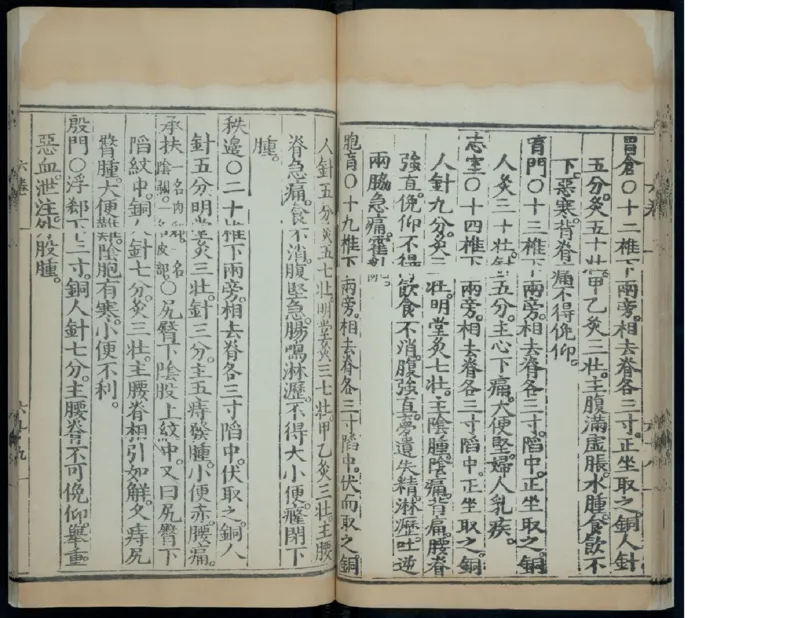 胃倉○十二椎下兩旁相去脊各三寸正坐取之銅人針
五分灸五十壯甲乙灸三壯主腹滿虛脹水腫食飲不
下惡寒背脊痛不得俛仰
肓門○十三椎下兩旁相去脊各三寸陷中正坐取之銅
人灸三十壯針五分主心下痛大便堅婦人乳疾
志室○十四椎下兩旁相去脊各三寸陷中正坐取之銅
人針九分灸三壯明堂灸七壯主陰腫陰痛背痛腰脊
強直俛仰不得飲食不消腹強直夢遺失精淋瀝吐逆
兩脇急痛霍
胞肓○十九椎下兩旁相去脊各三寸陷中伏而取之銅
人針五分灸五七壯明堂灸三七壯甲乙灸三壯主腰
脊急痛食不消腹堅急腸鳴淋瀝不得大小便癃閉下
腫
秩邊○二十椎下兩旁相去脊各三寸陷中伏取之銅人
針五分明堂灸三壯針三分主五痔發腫小便赤腰痛
承扶一名肉郄一名陰關一名皮部○尻臀下陰股上紋中又曰尻臀下
陷紋中銅人針七分灸三壯主腰脊相引如解久痔尻
臀腫大便難陰胞有寒小便不利
殷門○浮郄下三寸銅人針七分主腰脊不可俛仰舉重
惡血泄注外股腫
六卷